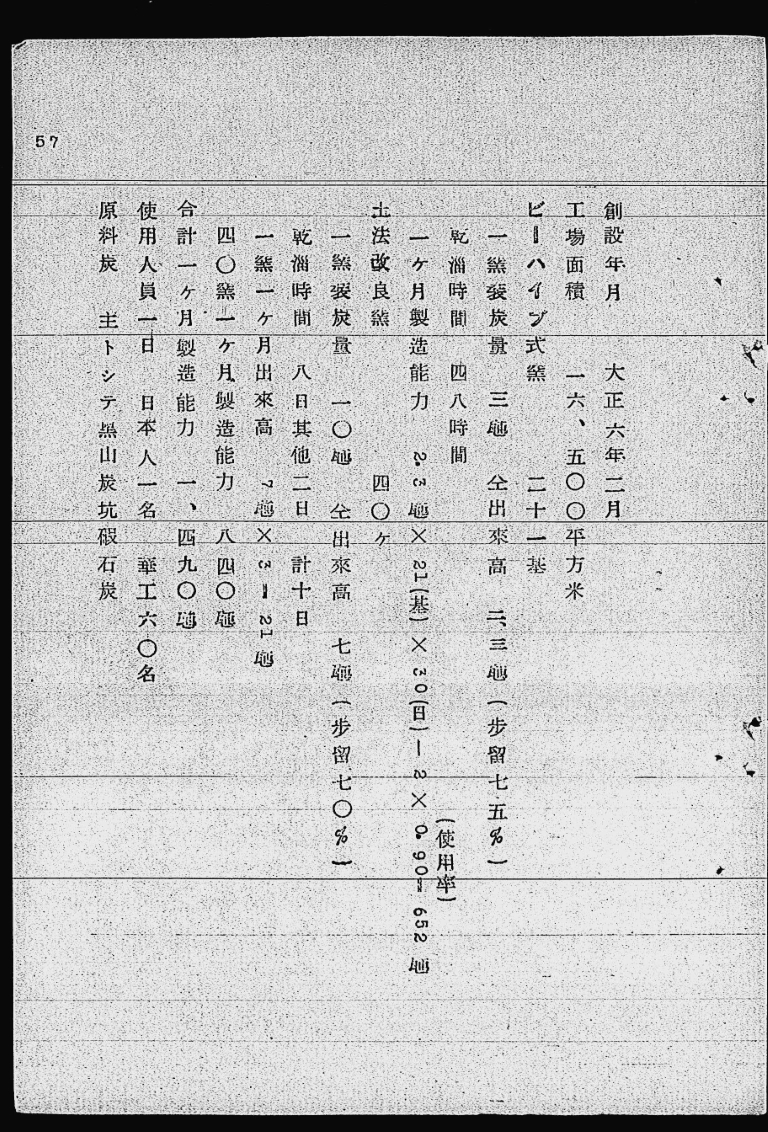 57
創設年月 大正六年二月
工場面積 一六、五〇〇平方米
ビーハイブ式窯 二十一基
一窯装炭量 三瓲 仝出來高 二、三瓲(步留七五%)
乾溜時間 四八時間
一ケ月製造能力 2.3瓲×21(基)×30(日)—2×0.90=652瓲
(使用率)
土法改良窯 四〇ケ
一窯装炭量 一〇瓲 仝出來高 七瓲(步留七〇%)
乾溜時間 八日其他二日 計十日
一窯一ケ月出來高 7瓲×3=21瓲
四〇窯一ケ月製造能力 八四〇瓲
合計一ケ月製造能力 一、四九〇瓲
使用人員一日 日本人一名 華工六〇名
原料炭 主トシテ黑山炭坑碬石炭